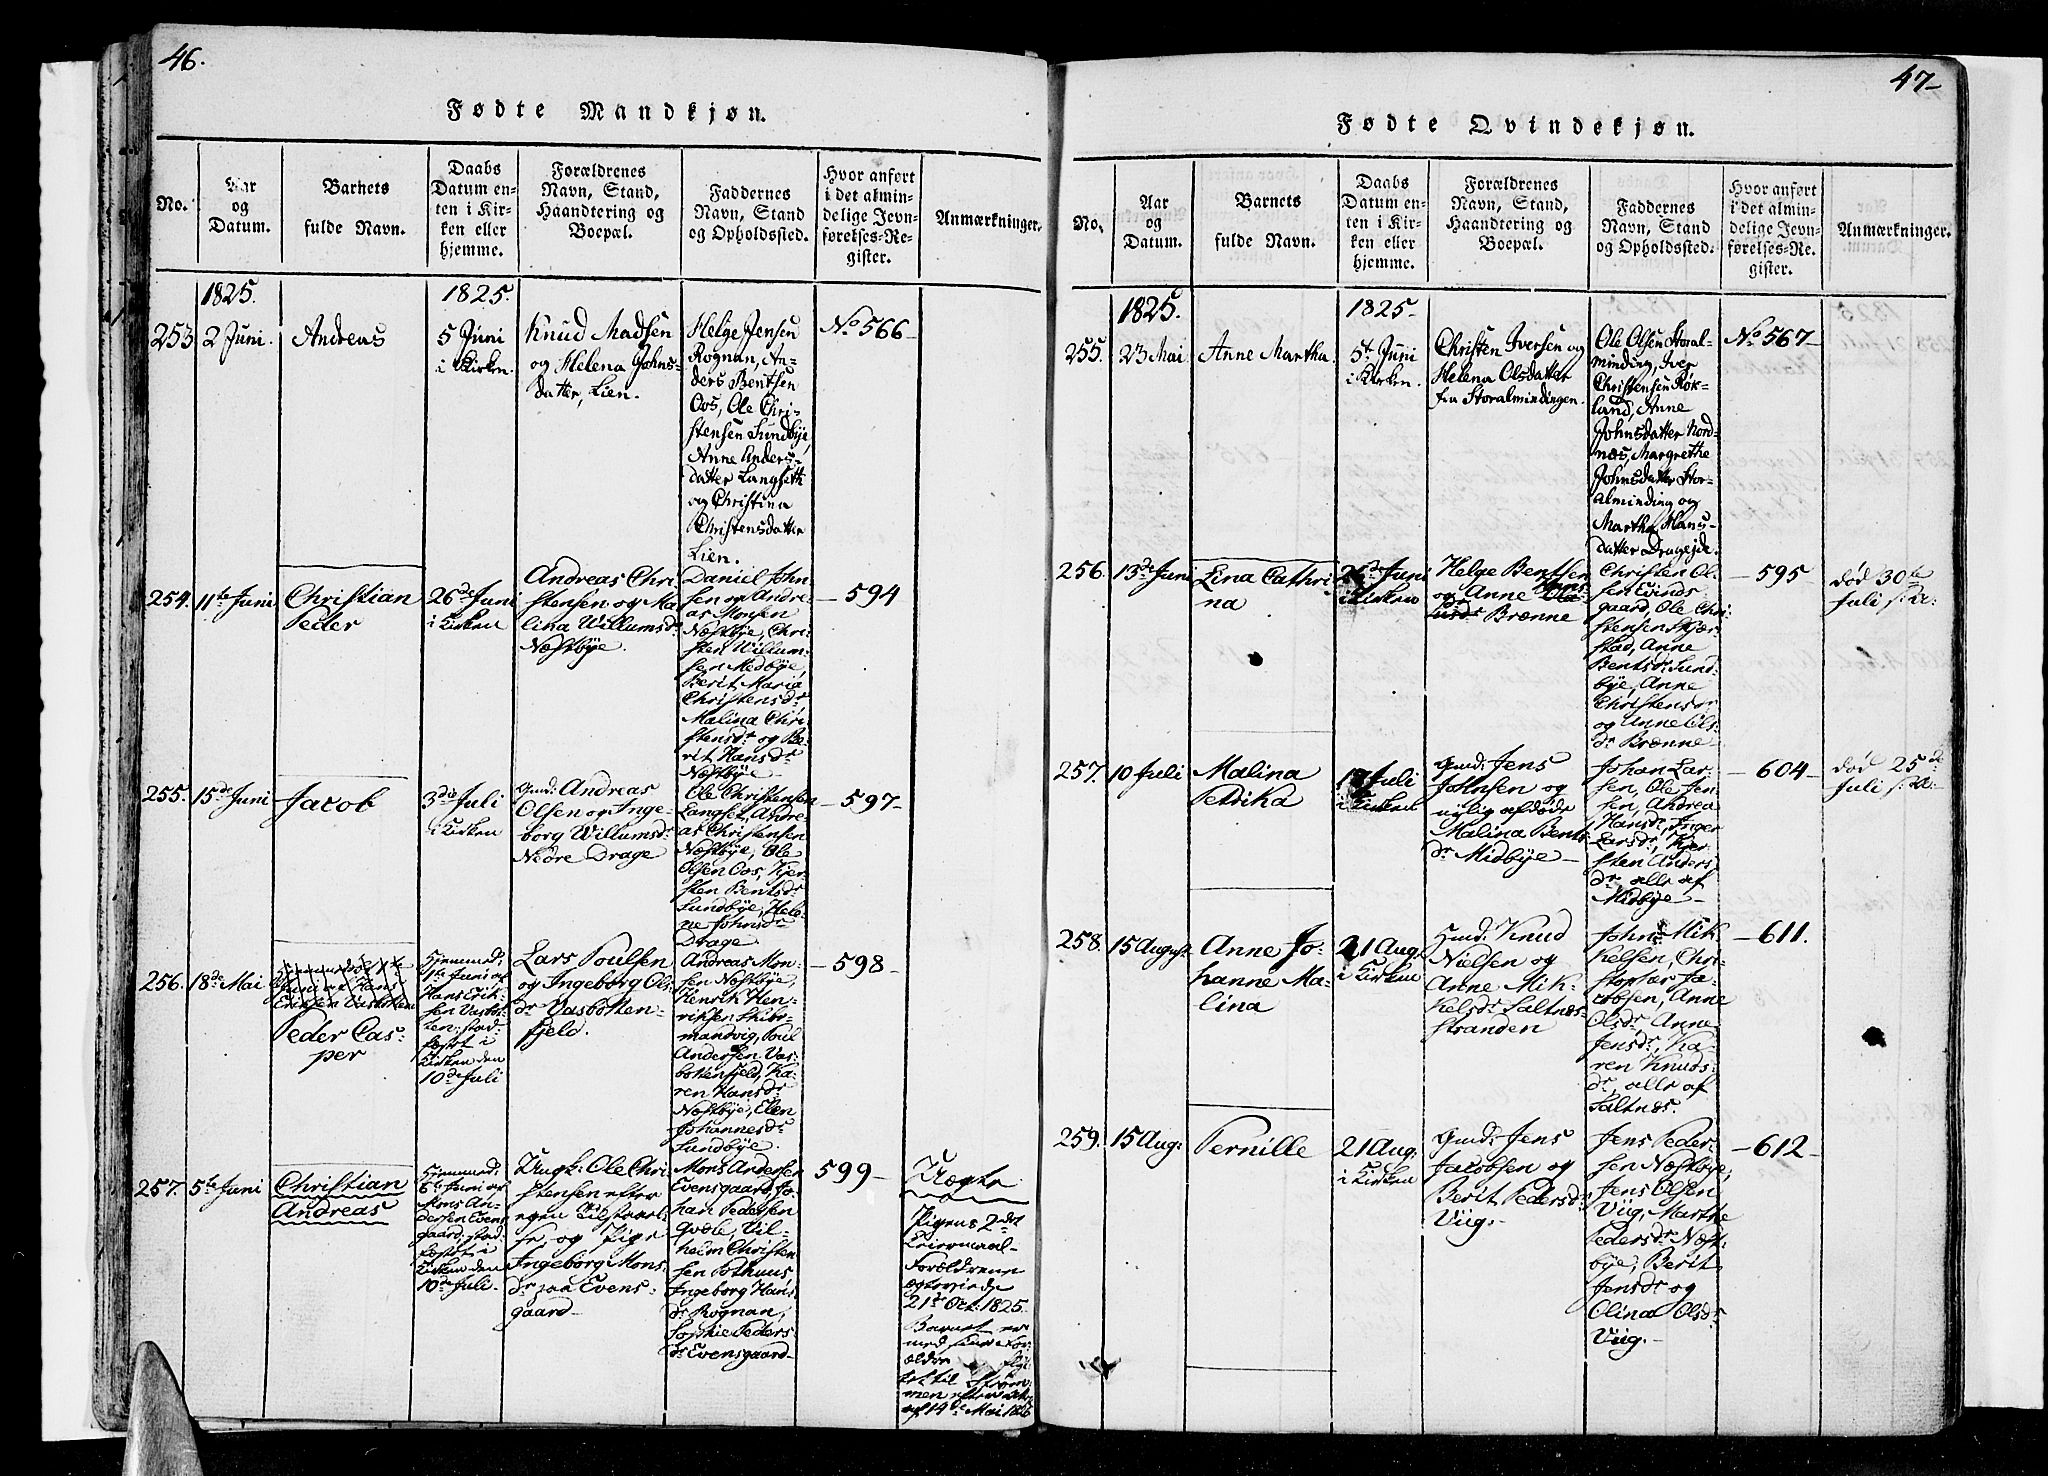 46.
Fødte Mandkjøn.
No.
Aar
og
Datum.
Barnets
fulde Navn.
Daabs
Datum en-
ten i Kir-
ken eller
hjemme.
Forældrenes
Navn, Stand,
Haandtering og
Boepæl.
Faddernes
Navn, Stand
og Opholdssted.
Hvor anført
i det almin-
delige Jevn-
førelses-Re-
gister.
Anmærkninger.
1825.
1825.
253
2 Juni.
Andreas
5 Juni
i Kirken.
Knud Madsen
og Helena Johns-
datter, Lien.
Helge Jensen
Rognan, An-
ders Bentsen
Oos, Ole Chri-
stensen Sundbÿe,
Anne Anders-
datter Langseth
og Christina
Christensdatter
Lien.
No 566
254.
11te Juni
Christian
Peder
26de Juni
i Kirken
Andreas Chri-
stensen og Ma-
lina Willumsdr
Næstbÿe.
Daniel John-
sen og Andre-
as Monsen
Næstbÿe, Chri-
sten Willum-
sen Medbÿe,
Berit Maria
Christensdr
Malina Chri-
stensdr og Be-
rit Hansdr
Næstbÿe
594
255.
15de Juni
Jacob
3die Juli
i Kirken
Gmd: Andreas
Olsen og Inge-
borg Willumsdr
Nedre Drage
Ole Christensen
Langset, Andre-
as Christensen
Næstbÿe, Ole
Olsen Oos, Kjer-
sten Bentsdr
Sundbÿe, Hele-
ne Johnsdr
Drage
597
256.
18de Mai
Peder Cas-
per
Hjemmed:
1te Juni af
Hans Erik-
sen Vasbot-
ten: stad-
fæstet i
Kirken den
10de Juli
Lars Poulsen
og Ingeborg Ols-
dr Vasbotten-
fjeld.
Andreas Mon-
sen Næstbÿe,
Henrik Hen-
riksen Skibs-
mandvig, Poul
Andersen Vas-
bottenfjeld, Ka-
ren Hansdr
Næstbÿe, Elen
Johannesdr
Sundbÿe.
598
257.
5te Juni
Christian
Andreas
Hjemmed:
6te Juni af
Mons An-
dersen Evens-
gaard, stad-
fæstet i
Kirken den
10de Juli.
Ungk: Ole Chri-
stensen efter
egen Tilstaael-
se, og Pige
Ingeborg Mons-
dr paa Evens-
gaard
Mons Andersen
Evensgaard, Jo-
han Pedersen
Qvæle, Vil-
helm Christen-
sen Pothuus
Ingeborg Hans-
dr Rognan,
Sophie Peders-
dr Evensgaard
599
Uægte
Pigens 2det
Leiermaal
Forældrene
ægteviede
21de Oct: 1825.
Barnet er
med sine For-
ældre flÿt-
tet til
men efter
af 14de Mai 18
47
Fødte Qvindekjøn.
No.
Aar
og
Datum.
Barnets
fulde Navn.
Daabs
Datum en-
ten i Kir-
ken eller
hjemme.
Forældrenes
Navn, Stand,
Haandtering og
Boepæl.
Faddernes
Navn, Stand
og Opholdssted.
Hvor anført
i det almin-
delige Jevn-
førelses-Re-
gister.
Anmærkninger.
1825.
1825.
255.
23 Mai
Anne Martha.
5t Juni
i Kirken.
Christen Iversen og
Helena Olsdatter
fra Storalmindingen.
Ole Olsen Storal-
minding, Iver
Christensen Røk-
land, Anne
Johnsdatter Nord-
næs, Margrethe
Johnsdatter Stor-
alminding og
Martha Hans-
datter Drageide.
No 567
256.
13de Juni
Lina Cathri-
na
26de Juni
i Kirken
Helge Bentsen
og Anne
Brænne
Christen Ol-
sen Evinds-
gaard, Ole Chri-
stensen Skjær-
stad, Anne
Bentsdr Sund-
bÿe, Anne
Christensdr
og Anne Ols-
dr Brænne
595
død 30te
Juli s: A:
257.
10 Juli
Malina
Petrika
17 Juli
i Kirken
Gmd: Jens
Johnsen og
nÿlig afdøde
Malina Bents-
dr Midbÿe
Johan Lar-
sen, Ole Jen-
sen, Andrea
Hansdr, Inger
Larsdr, Kjer-
sten Anders-
dr, alle af
Midbÿe
604
død 25de
Juli s: A:
258.
15 August
Anne Jo-
hanne Ma-
lina
21 Aug:
i Kirken
Huusmd: Knud
Nielsen og
Anne Mik-
kelsdr Saltnes-
stranden
John Mik-
kelsen, Chri-
stopher Ja-
cobsen, Anne
Olsdr, Anne
Jensdr, Ka-
ren Knuds-
dr, alle af
Saltnæs.
611.
259.
15 Aug:
Pernille
21 Aug:
i Kirken
Gmd: Jens
Jacobsen og
Berit Pedersdr
Viig.
Jens Peder-
sen Næstbÿe,
Jens Olsen
Viig, Marthe
Pedersdr Næst-
bÿe, Berit
Jensdr og
Olina Olsdr
Viig.
612